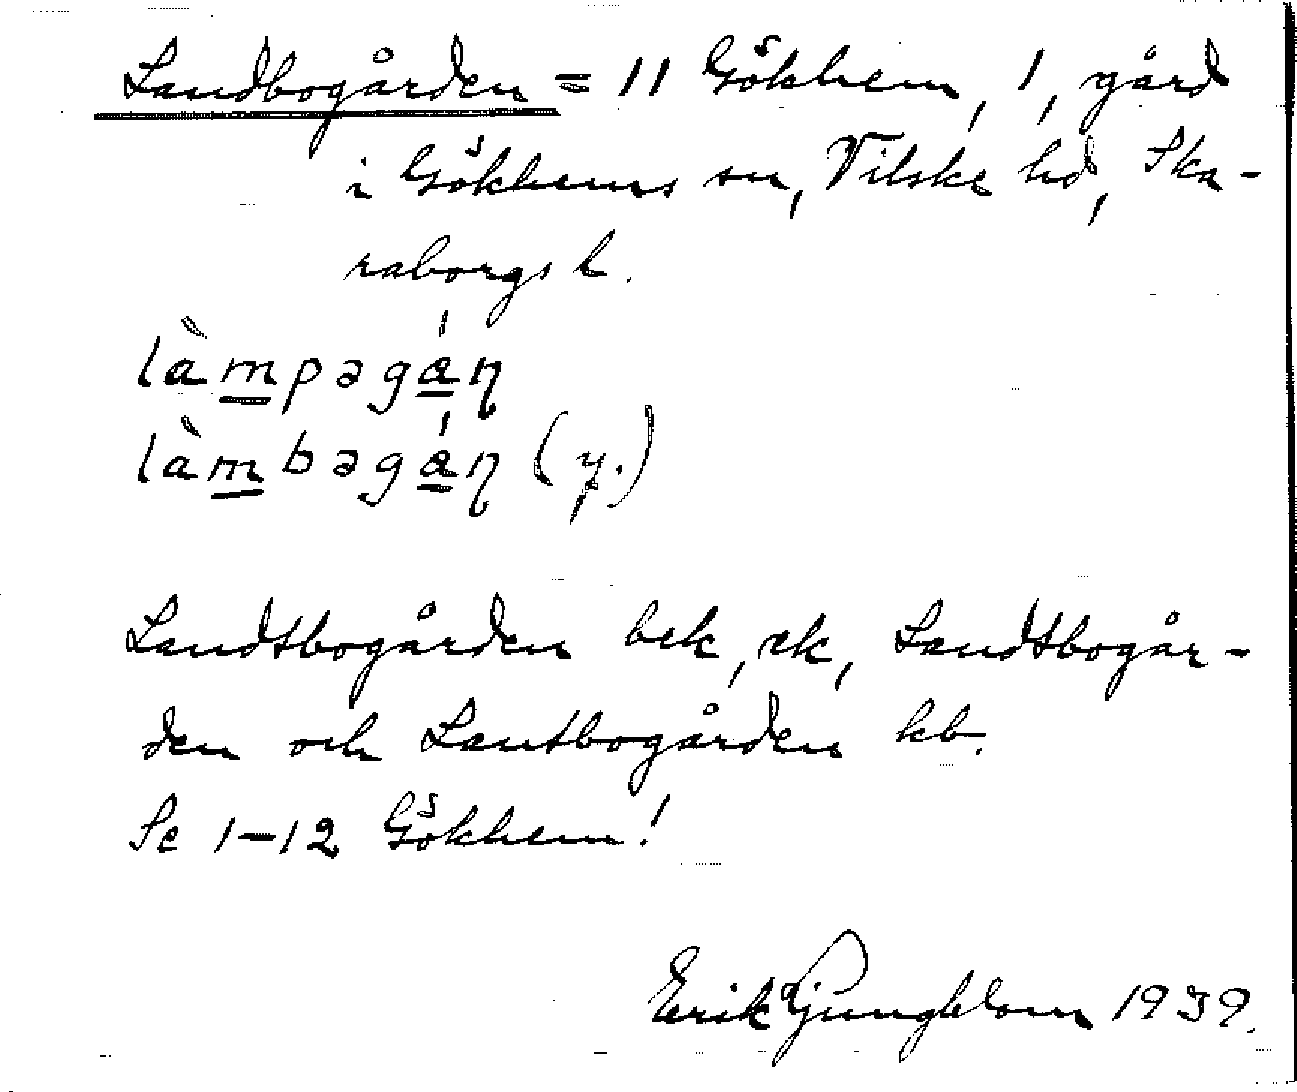 Landbogården = 11 Gökhem, 1, gård
i Gökhems sn, Vilske hd, Ska-
raborgs l.
làmpəgán
làmbəgán (y.)
Landtbogården bek, rk, Landtbogår-
den och Lantbogården kb.
Se 1-12 Gökhem!
Erik Ljungblom 1939.